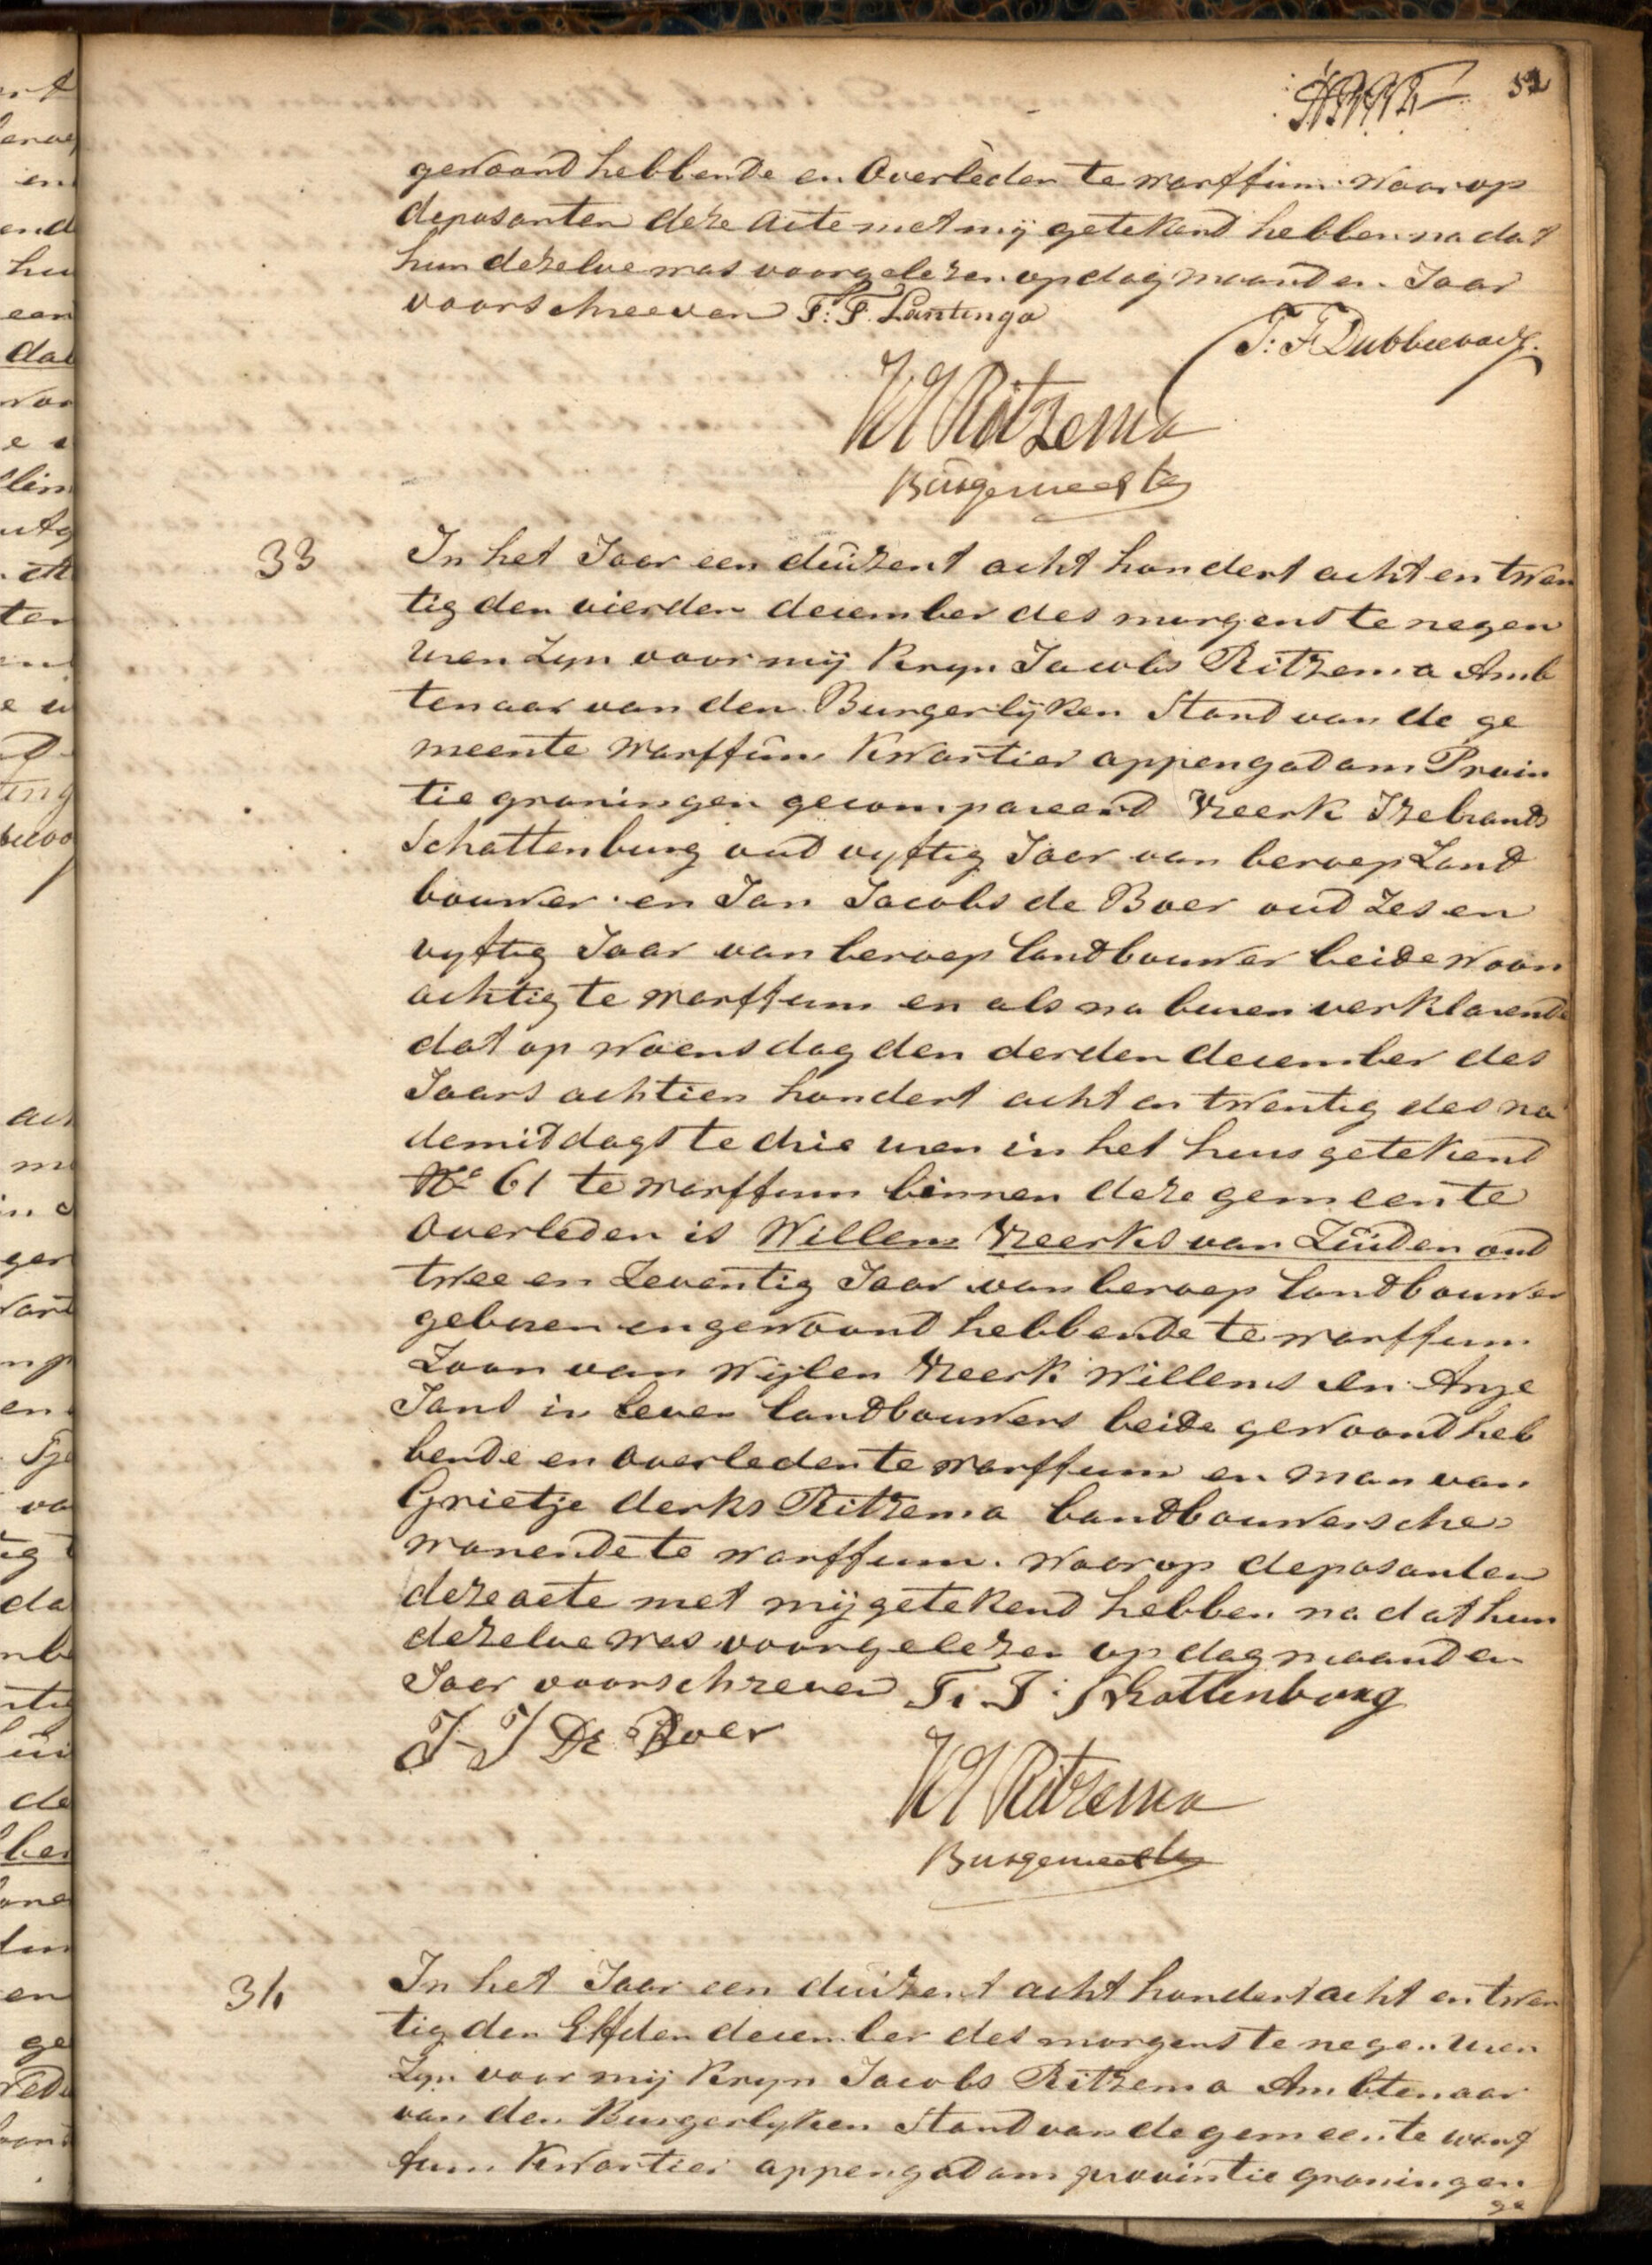 52
gewoond hebbende en Overleden te warffum. Waarop
deposanten deze acte met mij getekend hebben na dat
hun dezelve was voorgelezen op dag maand en Jaar
voorschreeven F: F. Lantinga
F: F Dubbee
K J Ritzema
Burgemeester
33 In het Jaar een duizent acht hondert acht en twen
tig den vierden december des morgens te negen
uren Zyn voor mij Kryn Jacobs Ritzema Amb
tenaar van den Burgerlijken Stand van de ge
meente Warffum Kwartier appengadam Provin
tie groningen gecompareerd Reerk Izebrands
Schattenburg oud vyftig Jaar van beroep Land
bouwer en Jan Jacobs de Boer oud Zes en
vyftig Jaar van beroep landbouwer beide woon
achtig te warffum en als na buren verklarende
dat op woensdag den derden december des
Jaars achtien hondert acht en twentig des na
demiddags te drie uren in het huis getekend
No 61 te warffum binnen deze gemeente
Overleden is Willem Reerks van Zuiden oud
twee en Zeventig Jaar van beroep landbouwer
geboren en gewoond hebbende te warffum
Zoon van Wijlen Reerk Willems en Anje
Jans in leven landbouwers beide gewoond heb
bende en Overleden te warffum en man van
Grietje derks Ritzema landbouwersche
wonende te warffum. Waarop deposanten
deze acte met mij getekend hebben na dat hun
dezelve was voorgelezen op dag maand en
Jaar voorschreven F: I: Schattenburg
J J De Boer
K J Ritzema
Burgemeester
34 In het Jaar een duizent acht hondert acht en twen
tig den Elfden december des morgens te negen uren
Zyn voor mij Kryn Jacobs Ritzema Ambtenaar
van den Burgerlyken Stand van de gemeente warf
fum Kwartier appengadam provintie groningen
ge